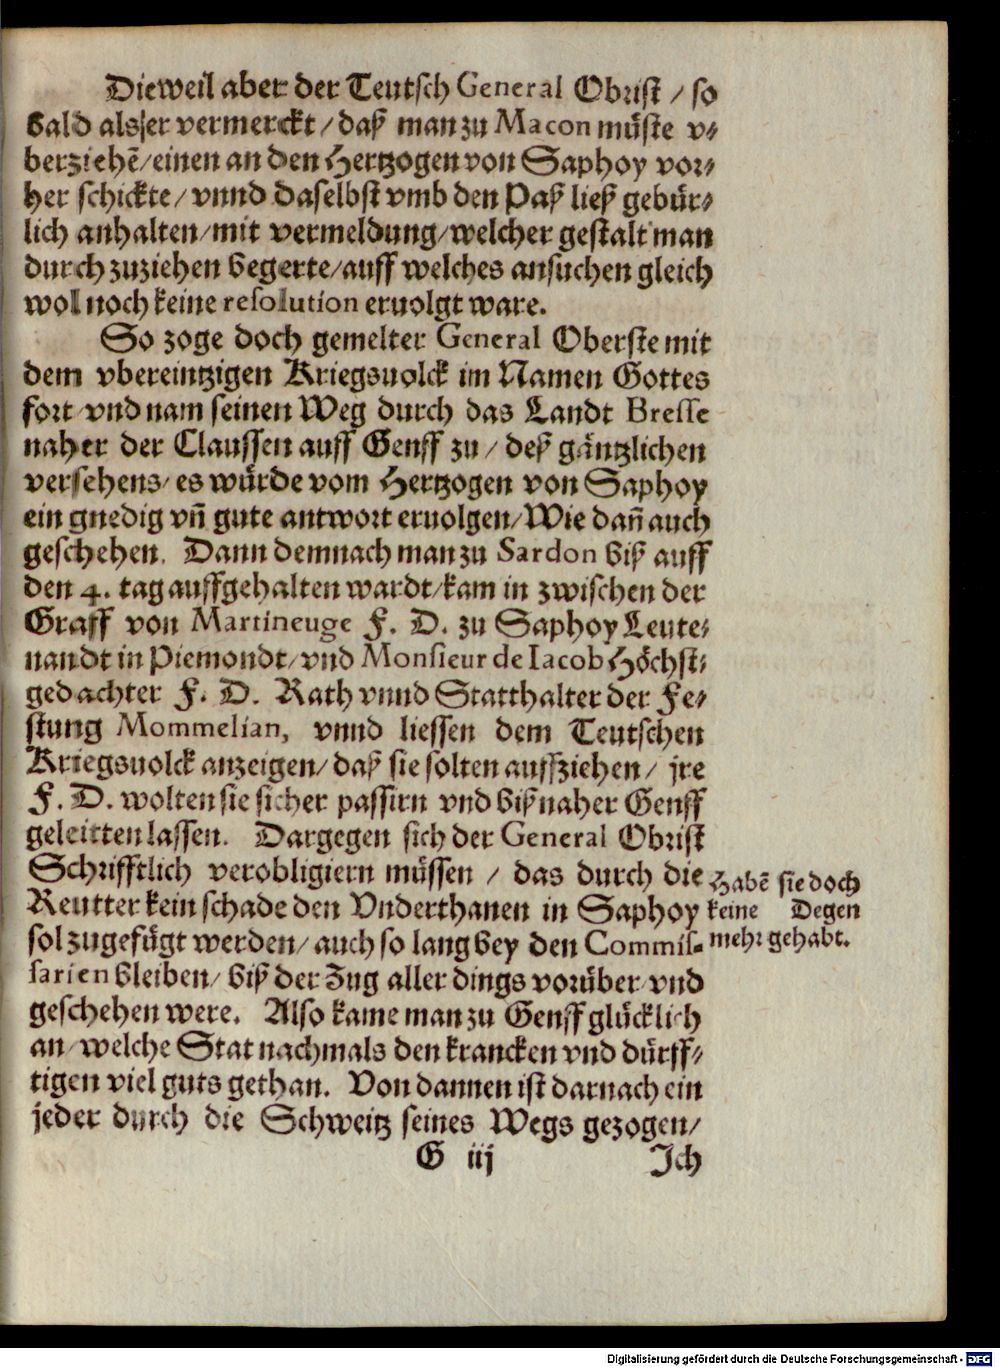 Dieweil aber der Teutsch General Obrist / so
bald als er vermerckt / daß man zu Macon müste v-
berziehẽ / einen an den Hertzogen von Saphoy vor-
her schickte / vnnd daselbst vmb den Paß ließ gebür-
lich anhalten / mit vermeldung / welcher gestalt man
durch zuziehen begerte / auff welches ansuchen gleich
wol noch keine resolution eruolgt ware.
So zoge doch gemelter General Oberste mit
dem vbereintzigen Kriegsuolck im Namen Gottes
fort / vnd nam seinen Weg durch das Landt Bresse
naher der Claussen auff Genff zu / deß gäntzlichen
versehens / es würde vom Hertzogen von Saphoy
ein gnedig vñ gute antwort eruolgen / Wie dañ auch
geschehen. Dann demnach man zu Sardon biß auff
den 4. tag auffgehalten wardt / kam in zwischen der
Graff von Martineuge F. D. zu Saphoy Leute-
nandt in Piemondt / vnd Monsieur de Iacob Höchst-
gedachter F. D. Rath vnnd Statthalter der Fe-
stung Mommelian, vnnd liessen dem Teutschen
Kriegsuolck anzeigen / daß sie solten auffziehen / jre
F. D. wolten sie sicher passirn vnd biß naher Genff
geleitten lassen. Dargegen sich der General Obrist
Schrifftlich verobligiern müssen / das durch die
Reutter kein schade den Vnderthanen in Saphoy
sol zugefügt werden / auch so lang bey den Commis-
sarien bleiben / biß der Zug aller dings vorüber vnd
geschehen were. Also kame man zu Genff glücklich
an / welche Stat nachmals den krancken vnd dürff-
tigen viel guts gethan. Von dannen ist darnach ein
jeder durch die Schweitz seines Wegs gezogen /
G iij Ich
Habẽ sie doch
keine Degen
mehr gehabt.
Digitalisierung gefördert durch die Deutsche Forschungsgemeinschaft - DFG